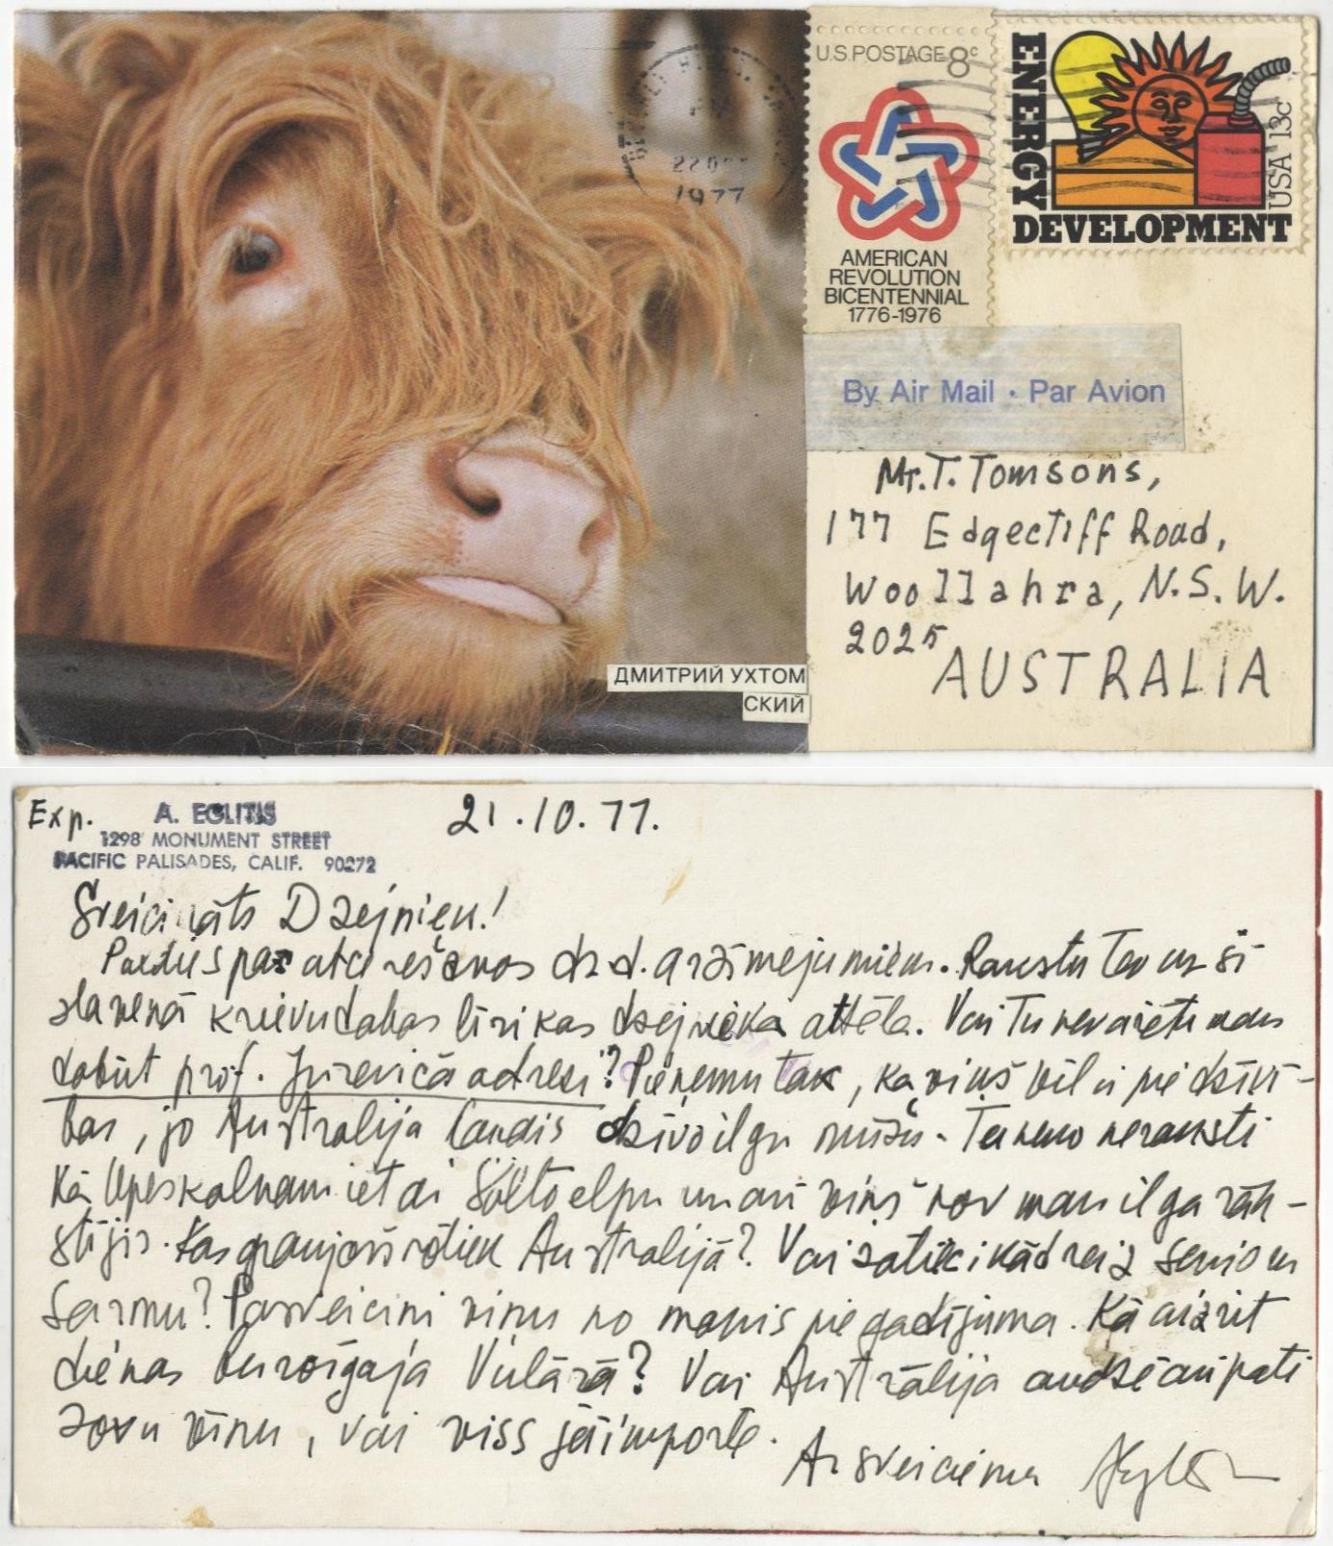 U.S. POSTAGE 8c
AMERICAN
REVOLUTION
BICENTENNIAL
1776-1976
ENERGY
DEVELOPMENT
USA 13c
22
1977
By Air Mail · Par Avion
Mr. T. Tomsons,
177 Edgecliff Road,
Woollahra, N.S.W.
2025
AUSTRALIA
ДМИТРИЙ УХТОМ
СКИЙ
Exp. A. EGLITIS
1298 MONUMENT STREET
PACIFIC PALISADES, CALIF. 90272
21.10.77.
Sveicināts Dzejniek!
Paldies par atcerēšanos dz.d. atzīmējumiem. Rakstu Tev uz šī
slavenā krievu dabas lirikas dzejnieka attēla. Vai Tu nevarētu man
dabūt prof. Jureviča adresi? Pieņemu tak, ka viņš vēl ir pie dzīvī-
bas, jo Austrālijā ļaudis dzīvo ilgu mūžu. Tas neraksti
kā Upeskalnam iet ar elpu un arī viņš nav man ilgi rak-
stījis. Kas Austrālijā? Vai satieci kādreiz senioru
Sarmu? Pasveicini viņu no manis pie gadījuma. Kā aizrit
dienas Vulārā? Vai Austrālija audzē arī pati
savu vīnu, vai viss jāimportē.
Ar sveicieniem